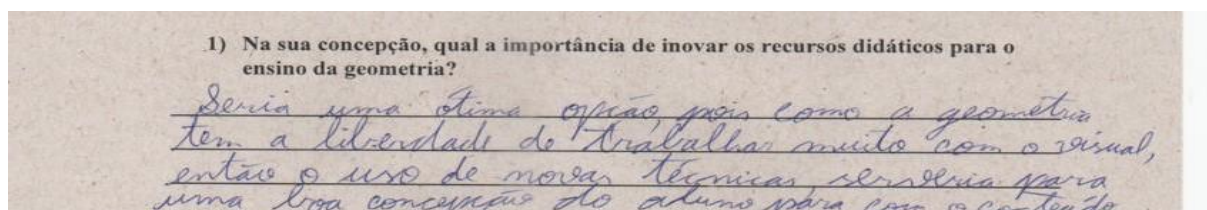 1) Na sua concepção, qual a importância de inovar os recursos didáticos para o
ensino da geometria?
Seria uma ótima opção, pois como a geometria
tem a liberdade de trabalhar muito com o visual,
então o uso de novas técnicas, serviria para
uma boa concepção do aluno para com o conteúdo